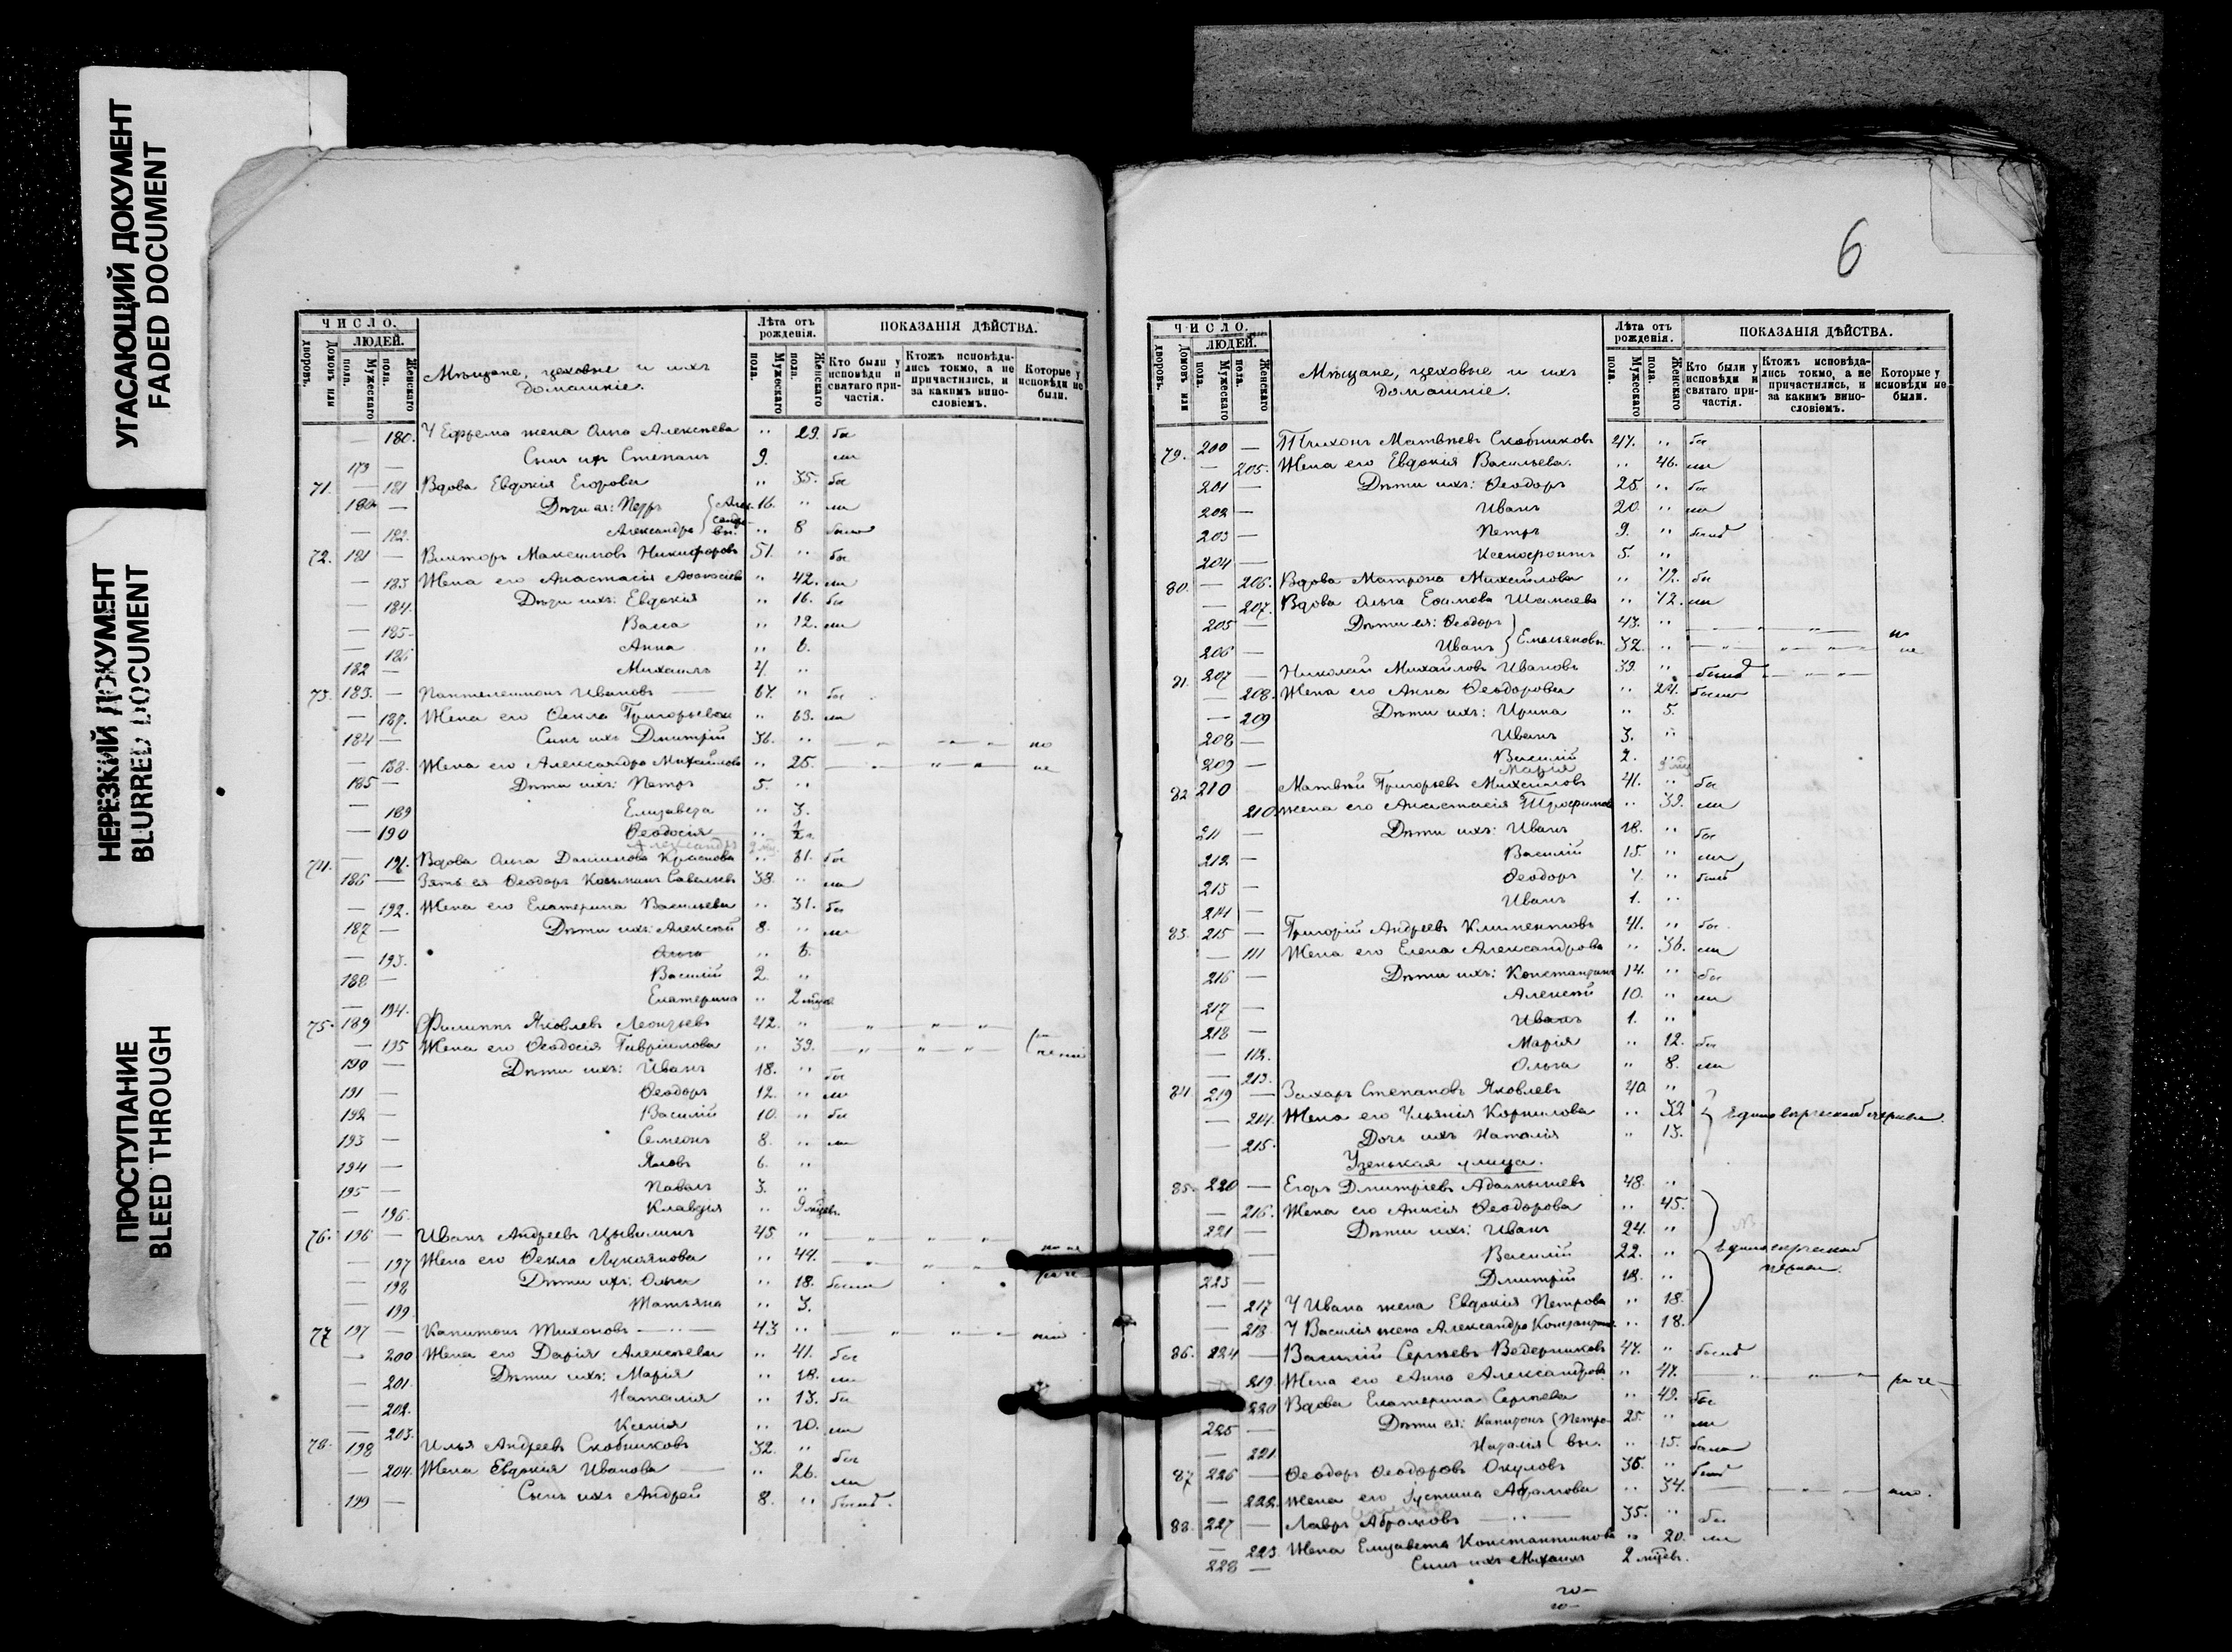 УГАСАЮЩИЙ ДОКУМЕНТ
FADED DOCUMENT
НЕРЕЗКИЙ ДОКУМЕНТ
BLURRED DOCUMENT
ПРОСТУПАНИЕ
BLEED THROUGH
ЧИСЛО.
ЛЮДЕЙ.
Домовъ или дворовъ.
Мужескаго пола.
Женскаго пола.
Мѣщане, цеховые и ихъ домашніе.
Лѣта отъ рожденія.
Мужескаго пола.
Женскаго пола.
ПОКАЗАНІЯ ДѢЙСТВА.
Кто были у исповѣди и святаго причастія.
Ктожъ исповѣдались токмо, а не причастились, и за какимъ винословіемъ.
Которые у исповѣди не были.
— 180. У Ефрема жена Анна Алексѣева " 29. бы
179 — Сынъ ихъ Степанъ 9. ли
71. — 181 Вдова Евдокія Егорова " 35. бы
180 — Дѣти ея: Петръ 16. " ли
— 182. Александра " 8 была
72. 181 — Викторъ Максимовъ Никифоровъ 51. " бы
— 183 Жена его Анастасія " 42. ли
— 184. Дѣти ихъ: Евдокія " 16. бы
— 185. Васса " 12. ли
— 186 Анна " 6.
182 — Михаилъ 4. "
73. 183. — Пантелеимонъ Ивановъ — 67. " бы
— 187. Жена его Ѳекла Григорьева " 63. ли
184 — Сынъ ихъ Дмитрій 36. "
— 188. Жена его Александра Михайлова " 25.
185 — Дѣти ихъ: Петръ 5. "
— 189 Елизавета " 3.
— 190 Ѳеодосія
Александръ
74. — 191. Вдова Анна Даніилова Краснова " 61. бы
186 — Зять ея Ѳеодоръ Козьминъ Савельевъ 38. " ли
— 192. Жена его Екатерина Васильева " 31. бы
187 — Дѣти ихъ: Алексѣй 8. " ли
— 193. Ольга " 6.
188 — Василій 2. "
— 194. Екатерина " 2 мѣся
75. 189 Филиппъ Яковлевъ Леонтьевъ 42. "
— 195 Жена его Ѳеодосія Гавріилова " 39.
190 — Дѣти ихъ: Иванъ 18. " бы
191 — Ѳеодоръ 12. " ли
192 — Василій 10. " бы
193 — Семеонъ 8. " ли
194 — Яковъ 6. "
195 — Павелъ 3. "
— 196. Клавдія " 9 мѣсяц.
76. 196 — Иванъ Андреевъ Цывилинъ 45. "
— 197 Жена его Ѳекла Лукоянова " 44.
— 198 Дѣти ихъ: Ольга " 18. была
— 199 Татьяна " 3.
77 197 — Капитонъ Тихоновъ — " — 43 "
— 200 Жена его Дарія Алексѣева " 41. бы
— 201. Дѣти ихъ: Марія " 18. ли
— 202. Наталія " 13. бы
— 203. Ксенія " 10. ли
78. 198 Илья Андреевъ Скобниковъ 32. " бы
— 204. Жена Евдокія Иванова — " 26. ли
199 — Сынъ ихъ Андрей 8. " былъ.
6
ЧИСЛО.
ЛЮДЕЙ.
Домовъ или дворовъ.
Мужескаго пола.
Женскаго пола.
Мѣщане, цеховые и ихъ домашніе.
Лѣта отъ рожденія.
Мужескаго пола.
Женскаго пола.
ПОКАЗАНІЯ ДѢЙСТВА.
Кто были у исповѣди и святаго причастія.
Ктожъ исповѣдались токмо, а не причастились, и за какимъ винословіемъ.
Которые у исповѣди не были.
79. 200 — Тихонъ Матвѣевъ Скобниковъ 47. " бы
— 205. Жена его Евдокія Васильева. " 46. ли
201 — Дѣти ихъ: Ѳеодоръ 25. " бы
202 — Иванъ 20. " ли
203 — Петръ 9. " былъ
204 — Ксенофонтъ 5. "
80. — 206. Вдова Матрона Михайлова " 72. бы
— 207. Вдова Ольга Ефимова " 72. ли
205 — Дѣти ея: Ѳеодоръ 43. "
206 — Иванъ } Емельяновы. 32. "
81. 207 — Николай Михайловъ Ивановъ 33. " былъ
— 208. Жена его Анна Ѳеодорова " 24. была
— 209 Дѣти ихъ: Ирина " 5.
208 — Иванъ 3. "
209 — Василій 2. "
Марія
82 210 — Матвѣй Григорьевъ Михайловъ 41. " бы
210 Жена его Анастасія Трофимова " 39. ли
211 — Дѣти ихъ: Иванъ 18. " бы
212 — Василій 15. " ли
213 — Ѳеодоръ 7. " былъ
214 — Иванъ 1. "
83. 215 — Григорій Андреевъ Климентовъ 41. " бы
— 211 Жена его Елена Александрова " 36. ли
216 — Дѣти ихъ: Константинъ 14. " бы
217 — Алексѣй 10. " ли
218 — Иванъ 1. "
— 212. Марія " 12. бы
— 213. Ольга " 8. ли
84. 219 — Захаръ Степановъ Яковлевъ 40. "
— 214. Жена его Ульянія Корнилова " 32 } Единовѣрческой церкви.
— 215. Дочь ихъ Наталія " 13.
Узенькая улица.
85. 220 — Егоръ Дмитріевъ 48. "
— 216. Жена его Анисія Ѳеодорова " 45.
221 — Дѣти ихъ: Иванъ 24. "
— Василій 22. " Единоверческой церкви.
223 — Дмитрій 18. "
— 217 У Ивана жена Евдокія Петрова " 18.
— 218 У Василія жена Александра " 18.
86. 224 — Василій Сергѣевъ Ведерниковъ 47. " былъ
— 219 Жена его Анна Александрова " 47.
220 Вдова Екатерина Сергѣева " 49. бы
225 — Дѣти ея: Капитонъ 25. " ли
— 221. Наталія } Петровы. " 15. была
87 226 — Ѳеодоръ Ѳеодоровъ Окуловъ 36. " былъ
— 222. Жена его Іустина Абрамова " 34.
88. 227 — Лавръ Абрамовъ — " — 35. " бы
— 223. Жена Елизавета Константинова " 20. ли
228 — Сынъ ихъ Михаилъ 2 мѣсяц.